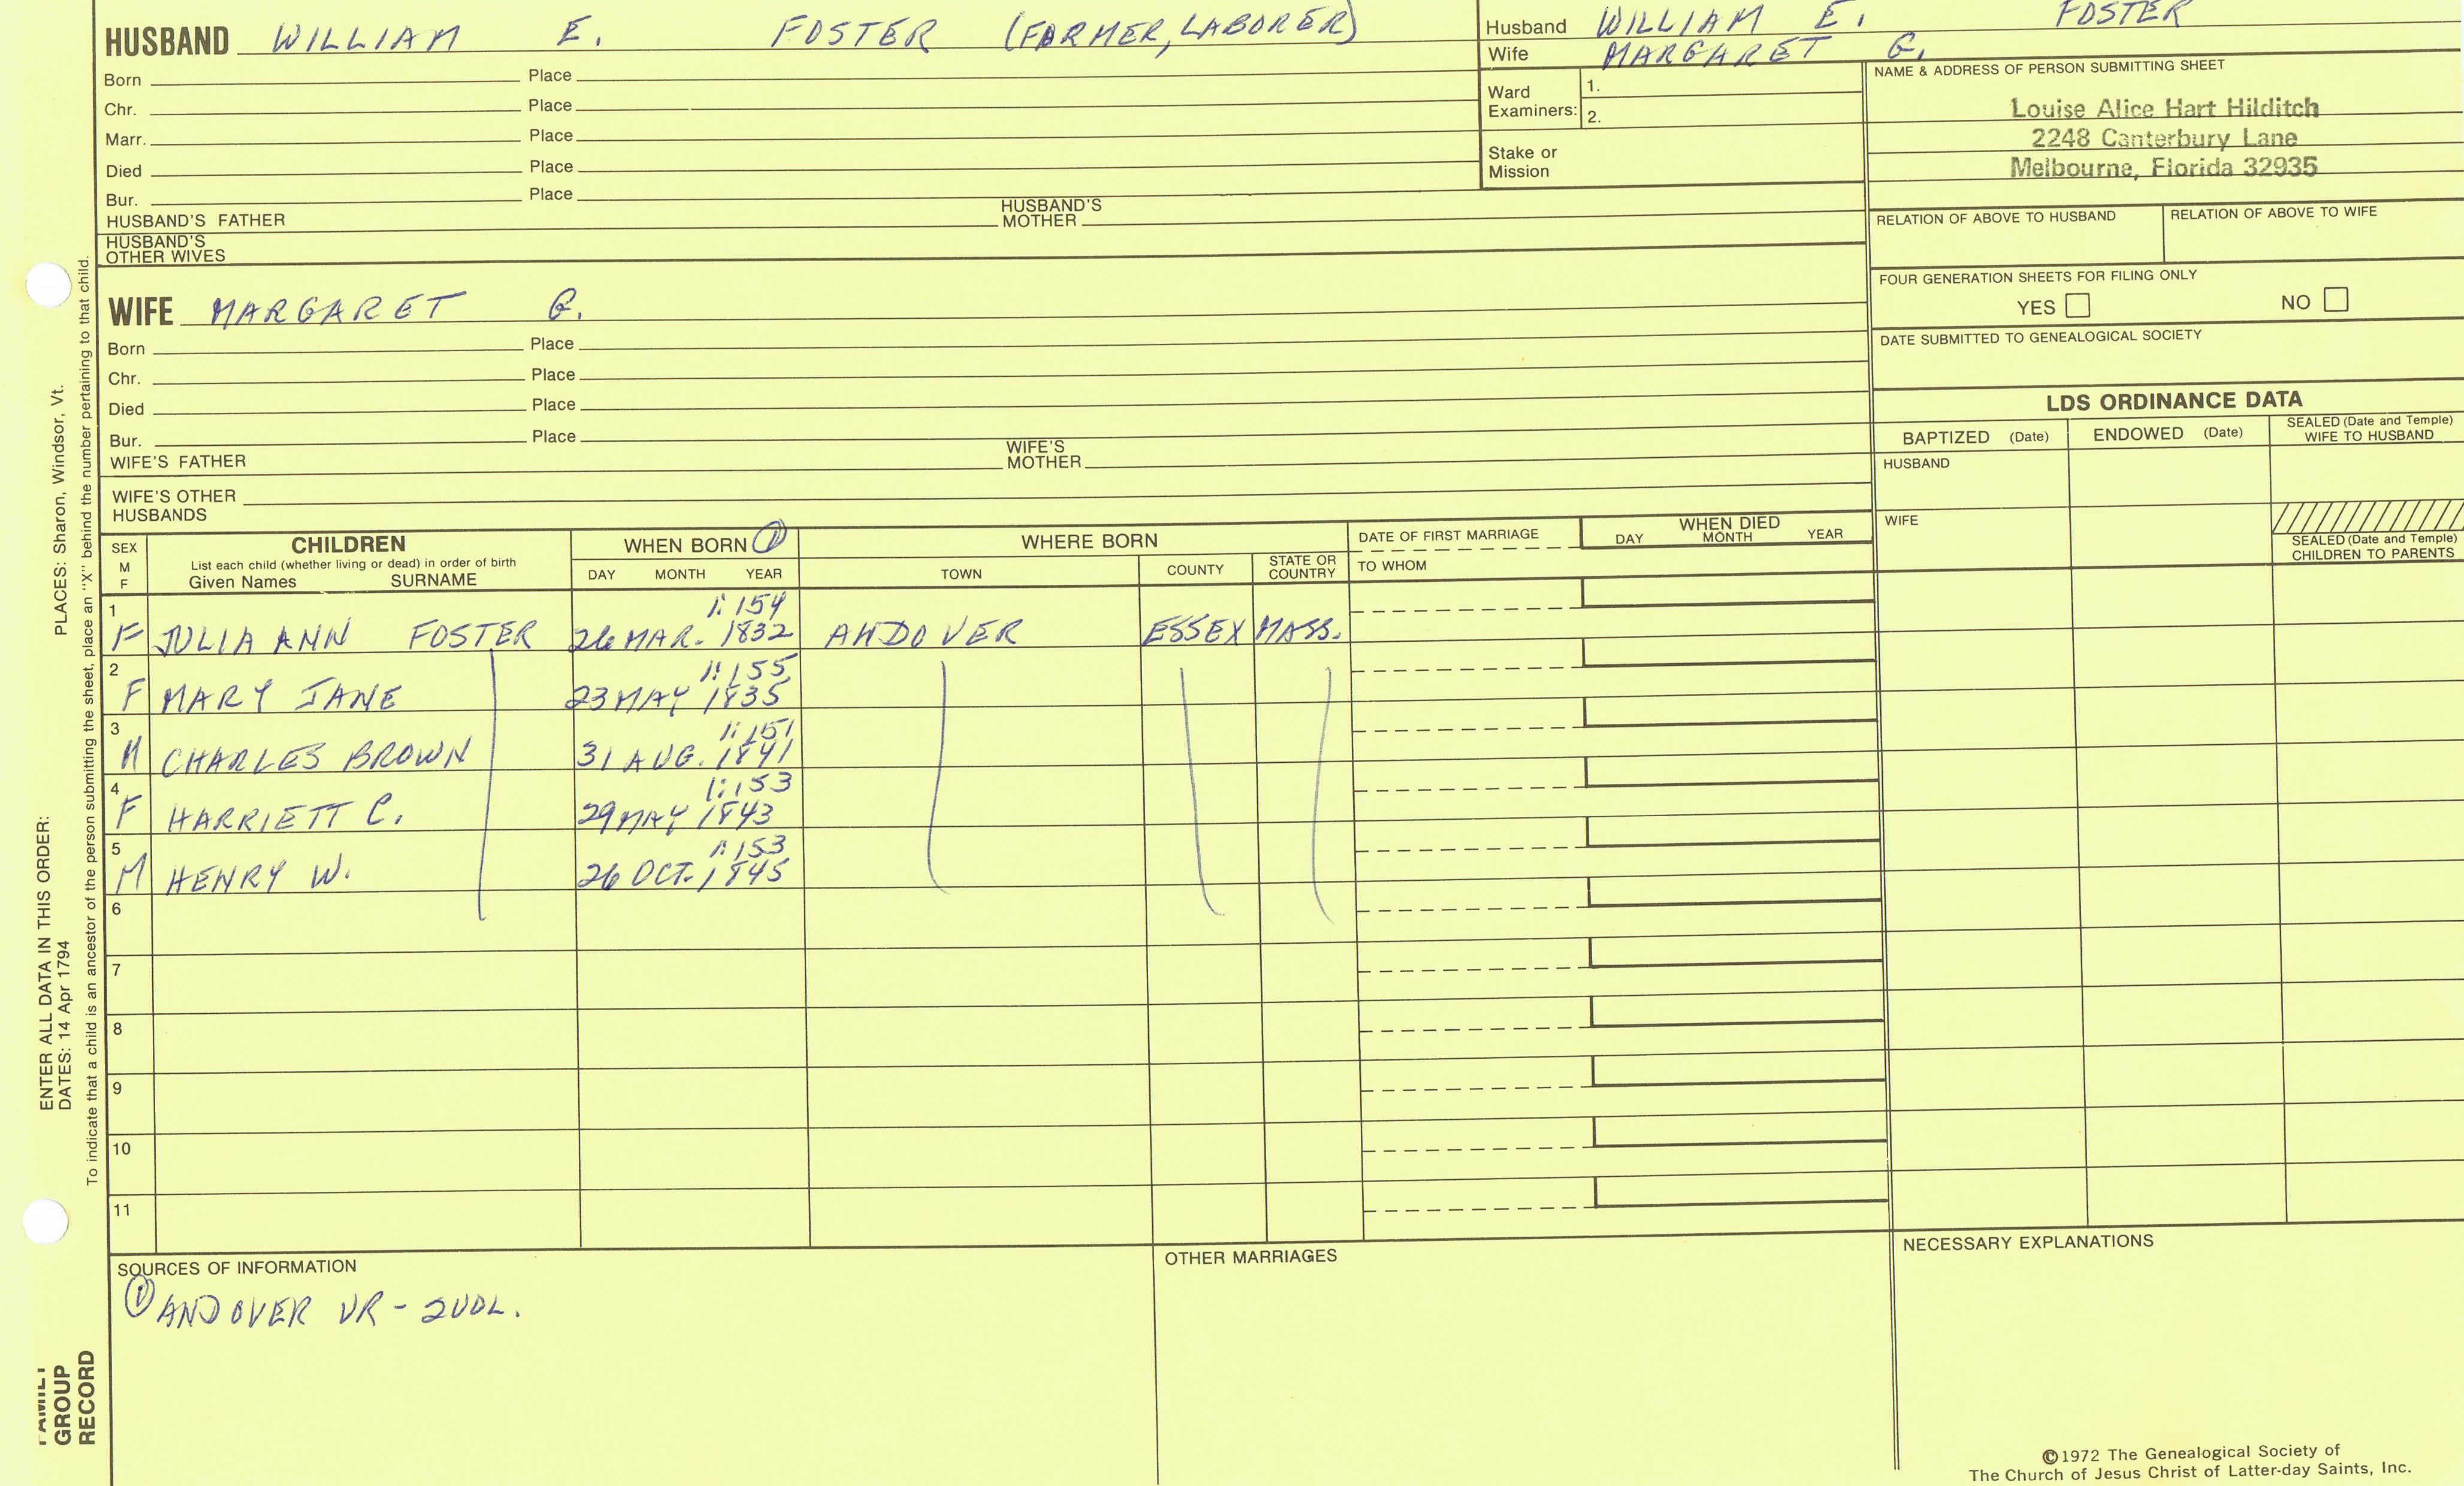 HUSBAND WILLIAM E. FOSTER (FARMER, LABORER)
Born Place
Chr. Place
Marr. Place
Died Place
Bur. Place
HUSBAND'S FATHER HUSBAND'S MOTHER
HUSBAND'S OTHER WIVES
Husband WILLIAM E. FOSTER
Wife MARGARET G.
Ward Examiners: 1.
2.
Stake or Mission
NAME & ADDRESS OF PERSON SUBMITTING SHEET
Louise Alice Hart Hilditch
2248 Canterbury Lane
Melbourne, Florida 32935
RELATION OF ABOVE TO HUSBAND RELATION OF ABOVE TO WIFE
FOUR GENERATION SHEETS FOR FILING ONLY
YES NO
DATE SUBMITTED TO GENEALOGICAL SOCIETY
WIFE MARGARET G.
Born Place
Chr. Place
Died Place
Bur. Place
WIFE'S FATHER WIFE'S MOTHER
WIFE'S OTHER HUSBANDS
LDS ORDINANCE DATA
BAPTIZED (Date) ENDOWED (Date) SEALED (Date and Temple) WIFE TO HUSBAND
HUSBAND
WIFE
SEALED (Date and Temple) CHILDREN TO PARENTS
SEX M F
CHILDREN
List each child (whether living or dead) in order of birth
Given Names SURNAME
WHEN BORN ①
DAY MONTH YEAR
WHERE BORN
TOWN COUNTY STATE OR COUNTRY
DATE OF FIRST MARRIAGE
TO WHOM
WHEN DIED
DAY MONTH YEAR
1 1:154
F JULIA ANN FOSTER 26 MAR. 1832 ANDOVER ESSEX MASS.
2 1:155
F MARY JANE 23 MAY 1835
3 1:151
M CHARLES BROWN 31 AUG. 1841
4 1:153
F HARRIETT C. 29 MAY 1843
5 1:153
M HENRY W. 26 OCT. 1845
6
7
8
9
10
11
SOURCES OF INFORMATION
① ANDOVER VR - 2VOL.
OTHER MARRIAGES
NECESSARY EXPLANATIONS
©1972 The Genealogical Society of
The Church of Jesus Christ of Latter-day Saints, Inc.
ENTER ALL DATA IN THIS ORDER:
DATES: 14 Apr 1794 PLACES: Sharon, Windsor, Vt.
To indicate that a child is an ancestor of the person submitting the sheet, place an "X" behind the number pertaining to that child.
FAMILY
GROUP
RECORD